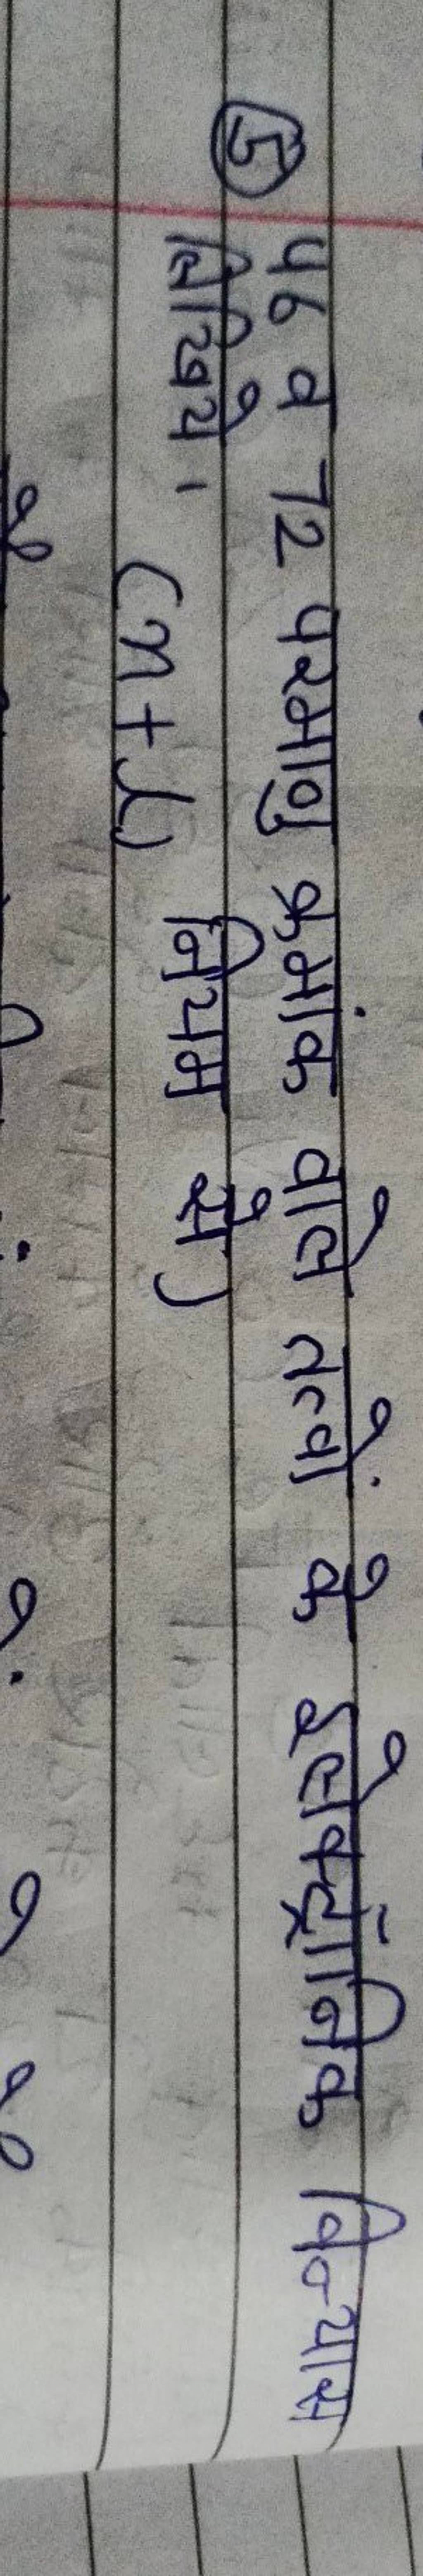 ⑤ 46 व 72 परमाणु क्रमांक वाले तत्वों के इलेक्ट्रॉनिक विन्यास
लिखिये। (n+l) नियम से)